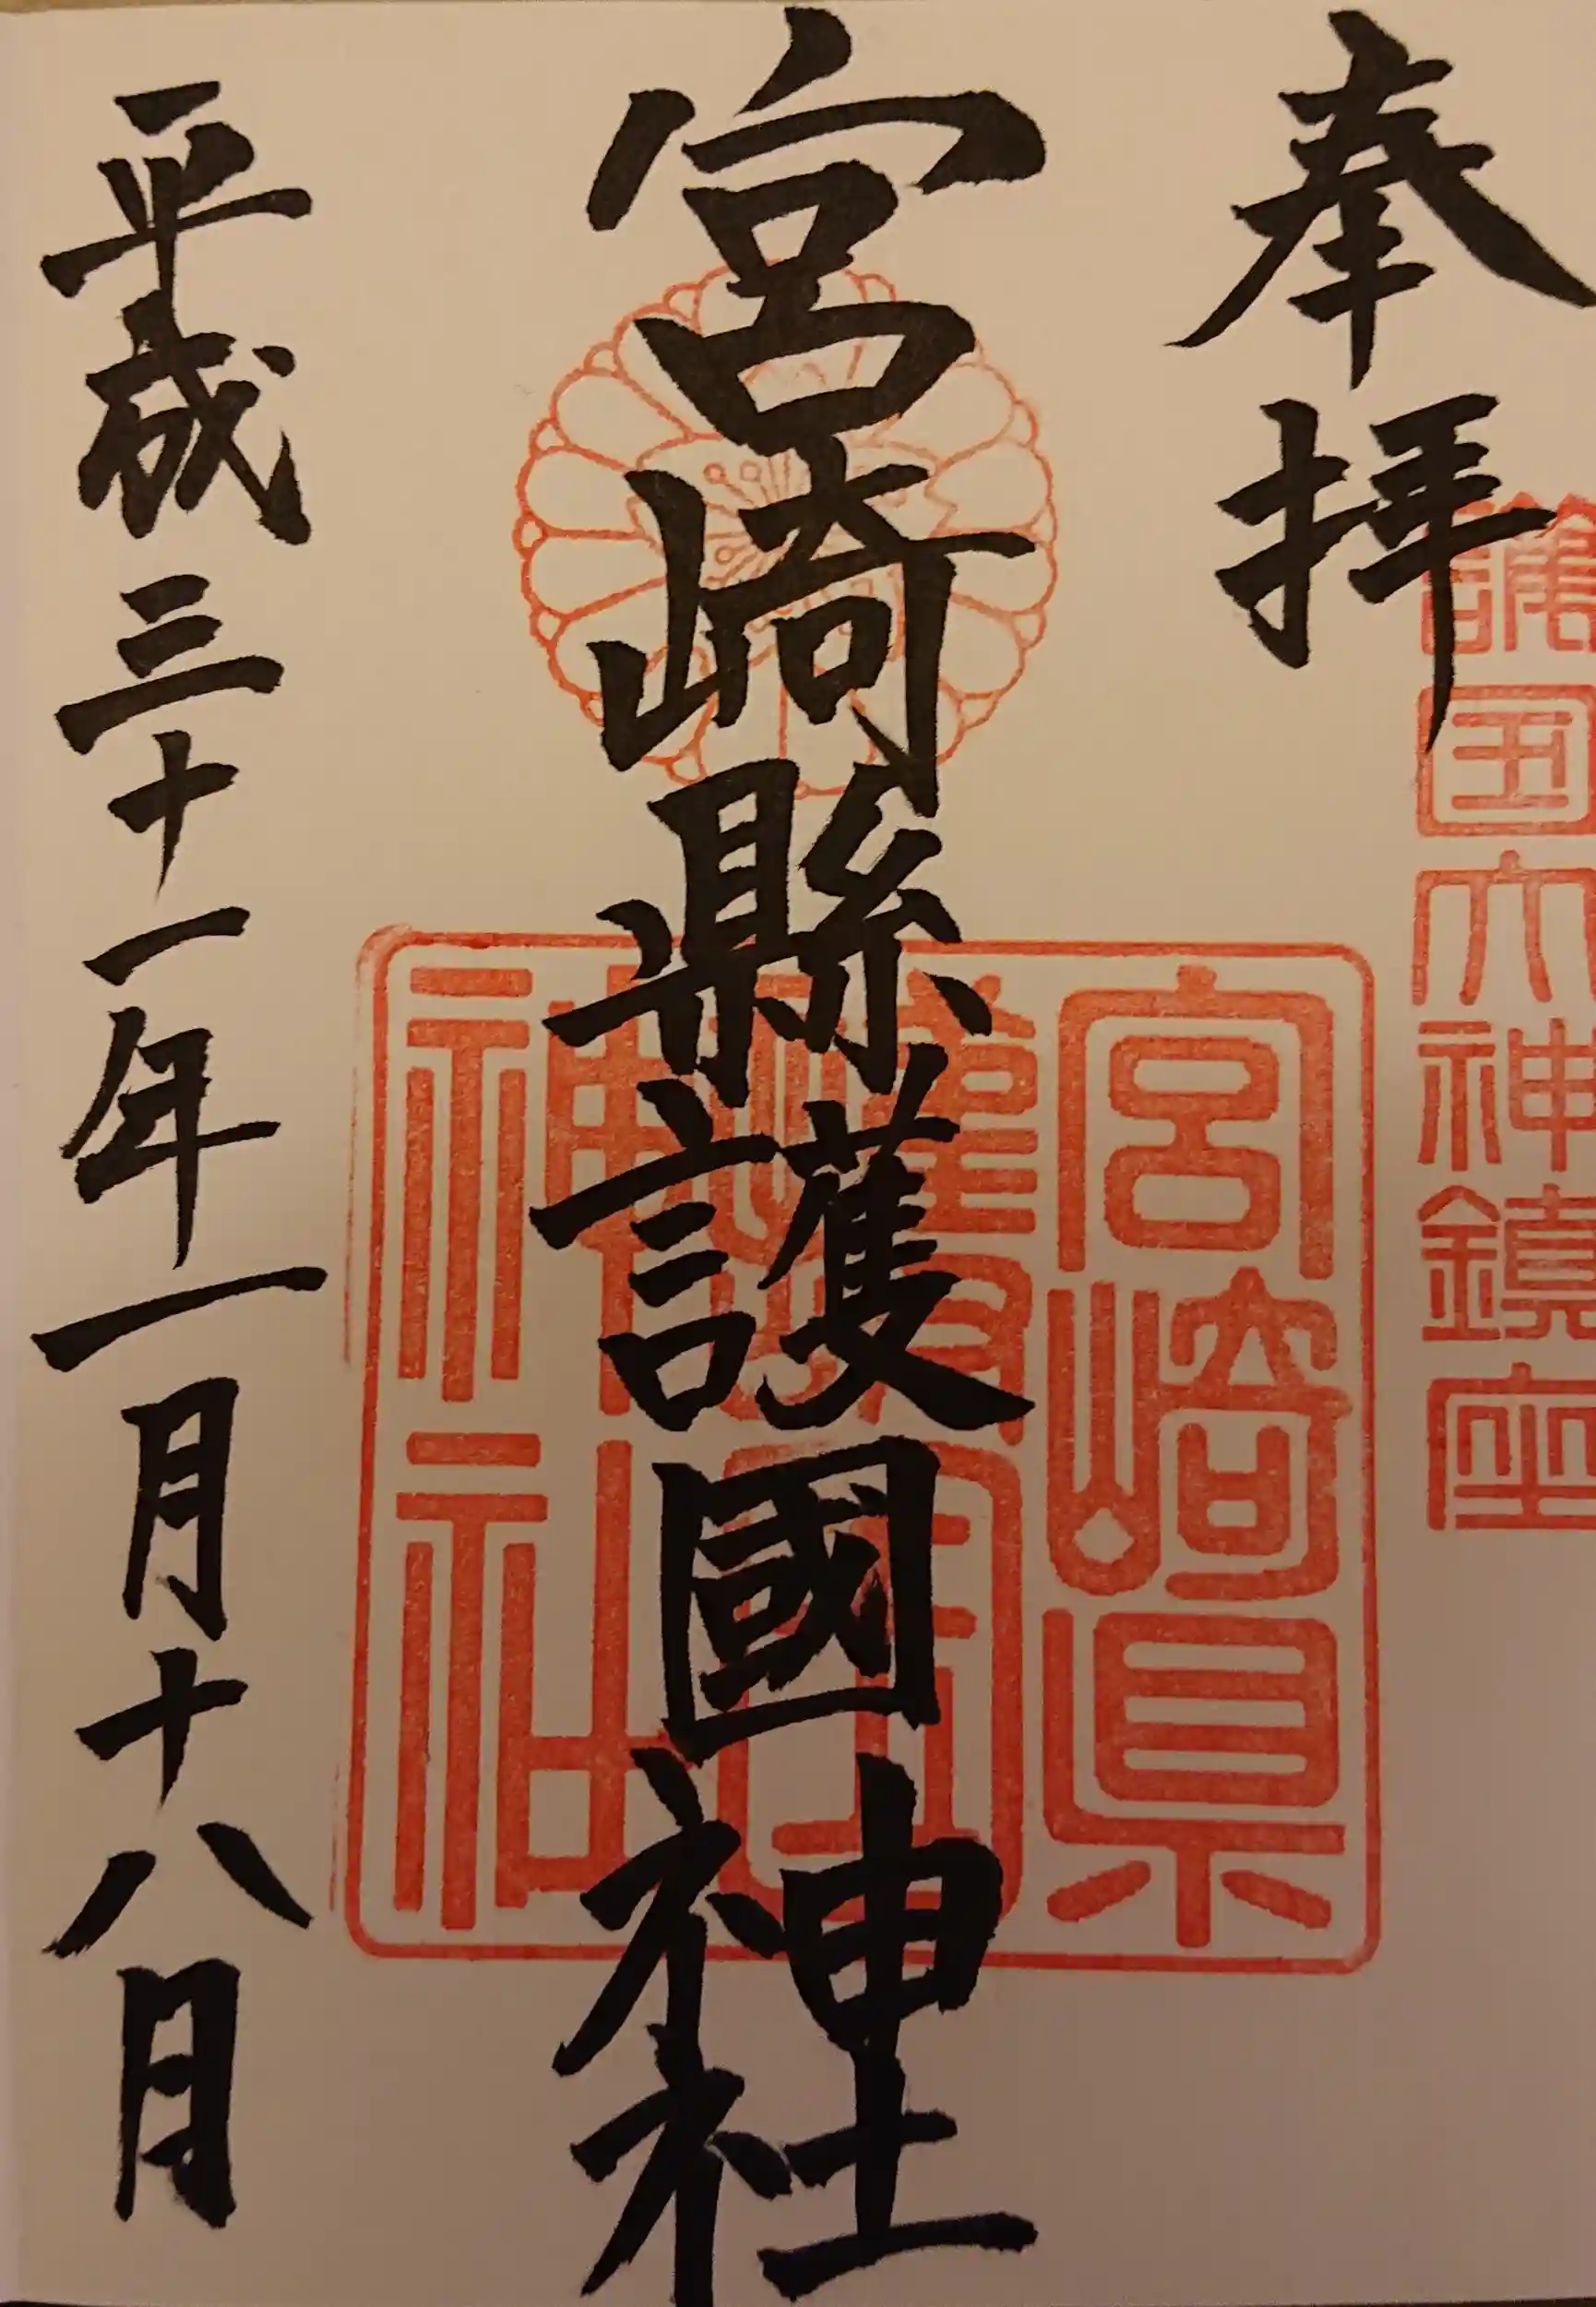 奉拝
護国大神鎮座
宮崎縣護國神社
宮崎県
護国
神社
平成三十一年一月十八日